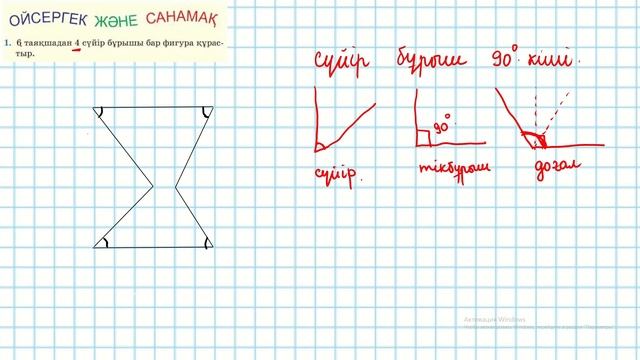 ОЙСЕРГЕК ЖӘНЕ САНАМАҚ
1. 6 таяқшадан 4 сүйір бұрышы бар фигура құрас-
тыр.
сүйір бұрыш 90° кіші.
90°
сүйір. тікбұрыш доғал
Активация Windows